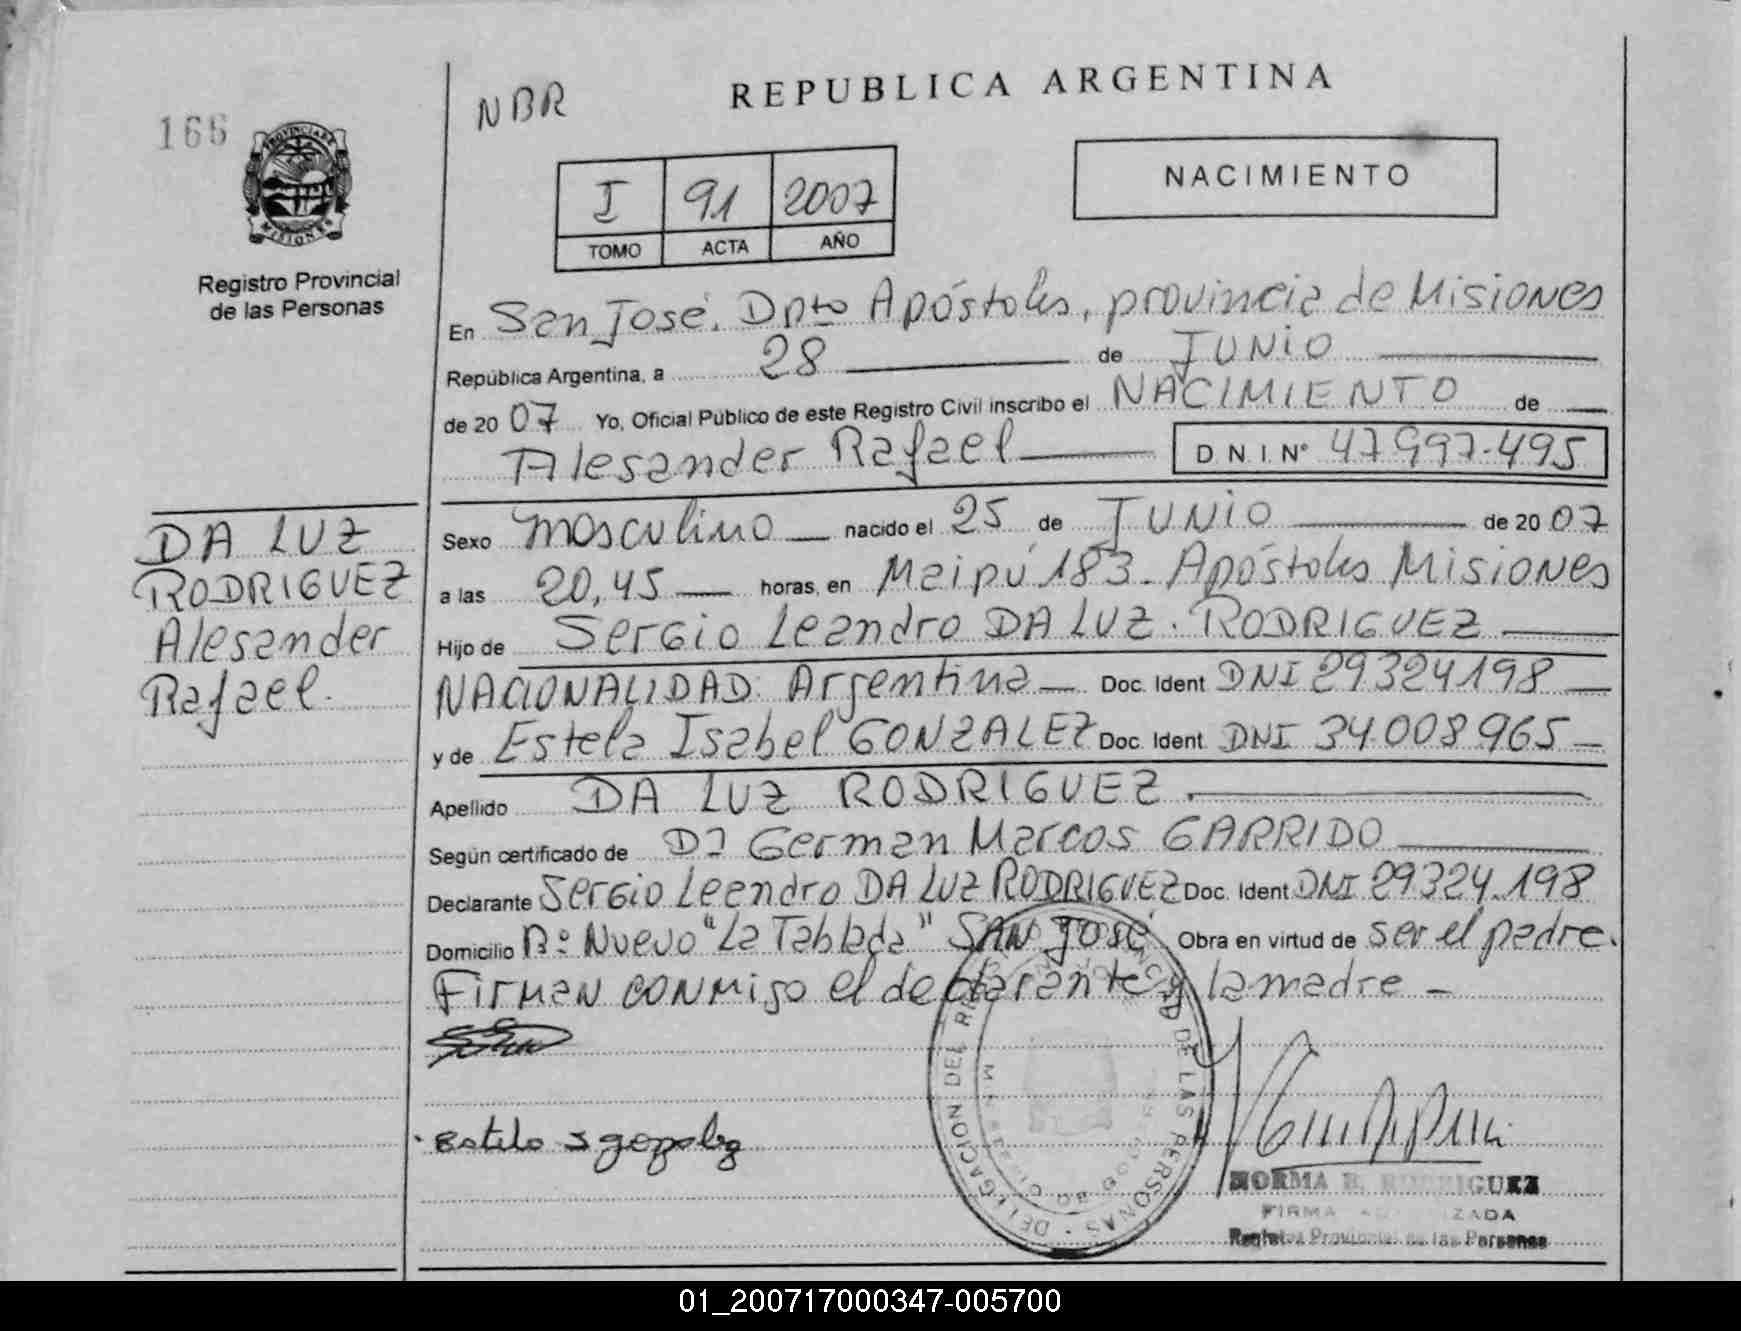 166
PROVINCIA DE
MISIONES
Registro Provincial
de las Personas
NBR
REPUBLICA ARGENTINA
I 91 2007
TOMO ACTA AÑO
NACIMIENTO
En San José, Dpto Apóstoles, provincia de Misiones
República Argentina, a 28 de JUNIO
de 2007 Yo, Oficial Público de este Registro Civil inscribo el NACIMIENTO de
Alesander Rafael D N I. N° 47997-495
DA LUZ
RODRIGUEZ
Alesander
Rafael.
Sexo masculino nacido el 25 de JUNIO de 2007
a las 20,45 horas, en Maipú 183. Apóstoles Misiones
Hijo de Sergio Leandro DA LUZ. RODRIGUEZ
NACIONALIDAD: Argentina Doc. Ident DNI 29324198
y de Estela Isabel GONZALEZ Doc. Ident DNI 34.008.965
Apellido DA LUZ RODRIGUEZ.
Según certificado de Dr German Marcos GARRIDO
Declarante Sergio Leandro DA LUZ RODRIGUEZ Doc. Ident DNI 29324.198
Domicilio Bº Nuevo "La Tablada" SAN José Obra en virtud de ser el padre.
Firman conmigo el declarante y la madre
DELEGACION DEL DE LAS PERSONAS
NORMA B. RODRIGUEZ
FIRMA AUTORIZADA
Registro Provincial de las Personas
01_200717000347-005700